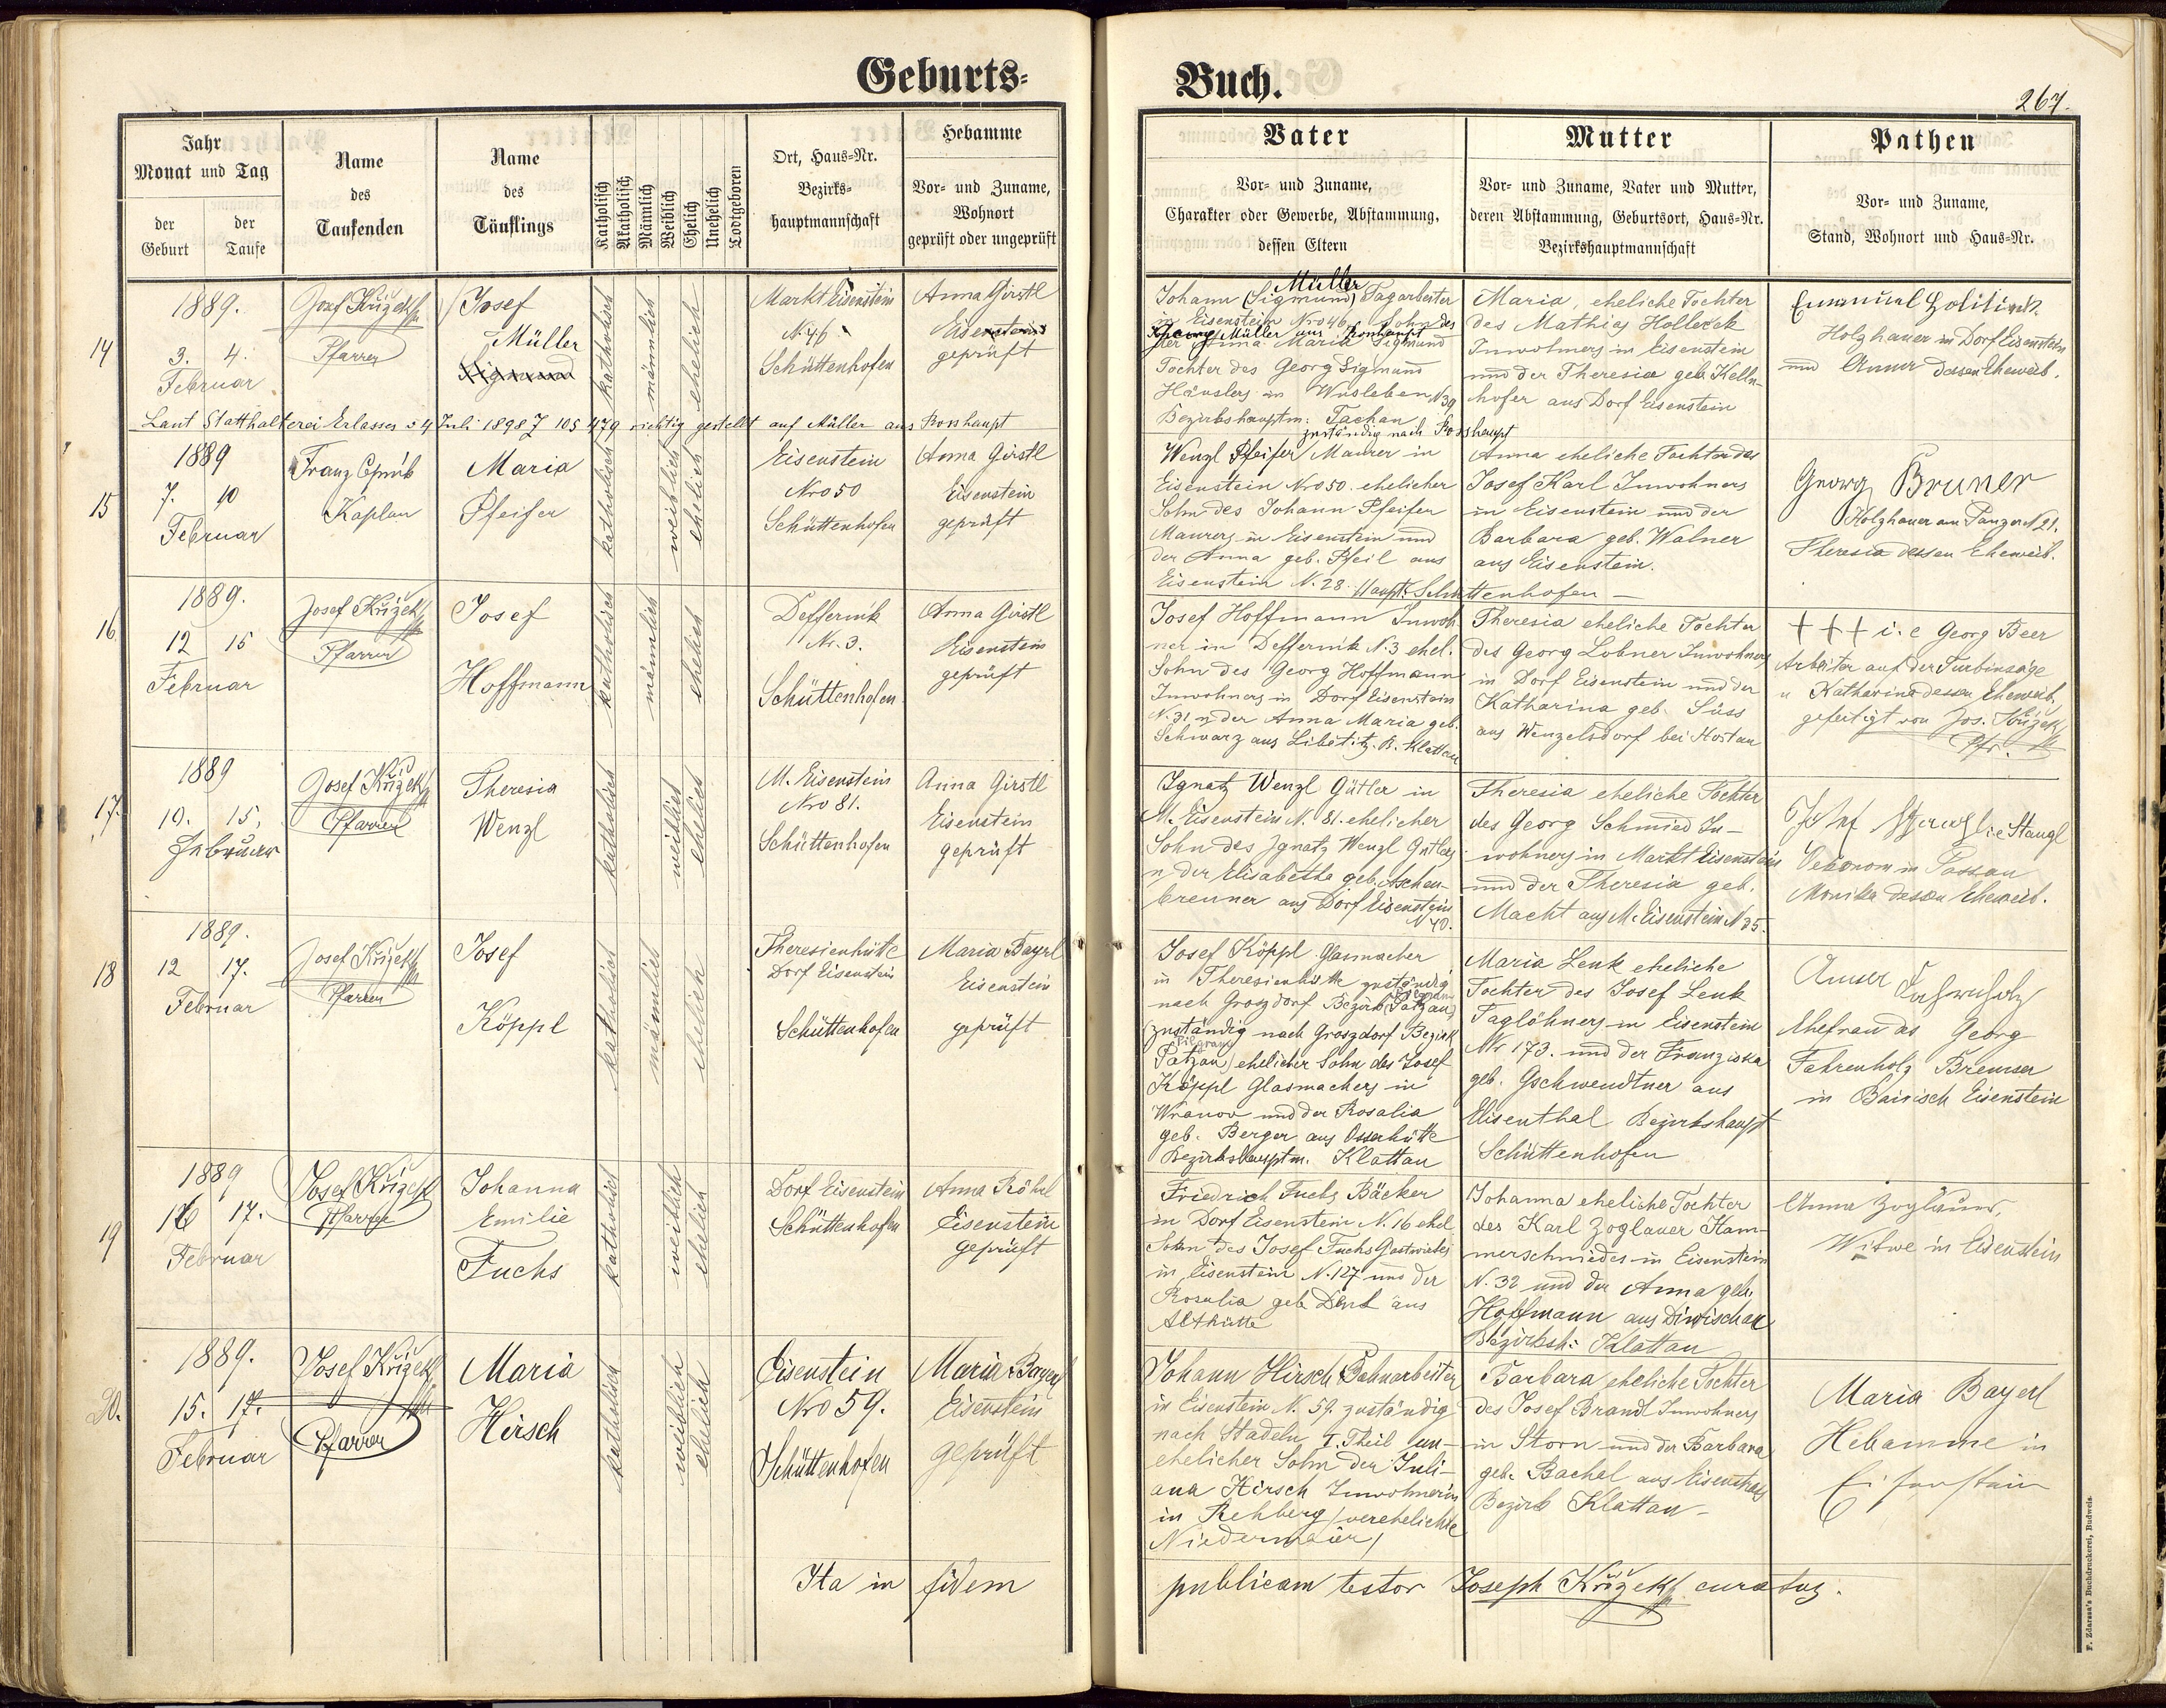 Geburts-
Buch.
267.
Jahr
Monat und Tag
der
Geburt
der
Taufe
Name
des
Taufenden
Name
des
Täuflings
Katholisch
Akatholisch
Männlich
Weiblich
Ehelich
Unehelich
Todtgeboren
Ort, Haus-Nr.
Bezirks-
hauptmannschaft
Hebamme
Vor- und Zuname,
Wohnort
geprüft oder ungeprüft
Vater
Vor- und Zuname,
Charakter oder Gewerbe, Abstammung,
dessen Eltern
Mutter
Vor- und Zuname, Vater und Mutter,
deren Abstammung, Geburtsort, Haus-Nr.
Bezirkshauptmannschaft
Pathen
Vor- und Zuname,
Stand, Wohnort und Haus-Nr.
14
1889.
3. 4.
Februar
Josef Křižek
Pfarrer
Josef
Müller
Sigmund
katholisch
männlich
ehelich
Markt Eisenstein
N. 46
Schüttenhofen
Anna Girstl
Eisenstein
geprüft
Müller
Johann (Sigmund) Tagarbeiter
in Eisenstein Nro 46. Sohn des
Müller aus Rosshaupt
der Anna Maria Sigmund
Tochter des Georg Sigmund
Häuslers in Wusleben N 39
Bezirkshauptm. Tachau
zuständig nach Rosshaupt
Maria, eheliche Tochter
des Mathias Holleček
Inwohners in Eisenstein
und der Theresia geb. Kelln-
hofer aus Dorf Eisenstein
Emanuel
Holzhauer in Dorf Eisenstein
und Anna dessen Eheweib.
Laut Statthalterei Erlasses v 4 Juli 1898 Z 105 479 richtig gestellt auf Müller aus Rosshaupt
15
1889
7. 10
Februar
Franz
Kaplan
Maria
Pfeifer
katholisch
weiblich
ehelich
Eisenstein
Nro 50
Schüttenhofen
Anna Girstl
Eisenstein
geprüft
Wenzl Pfeifer Maurer in
Eisenstein Nro 50. ehelicher
Sohn des Johann Pfeifer
Maurers in Eisenstein und
der Anna geb. Pfeil aus
Eisenstein N. 28. Haupt. Schüttenhofen
Anna eheliche Tochter des
Josef Karl Inwohners
in Eisenstein und der
Barbara geb. Walner
aus Eisenstein.
Georg Bruner
Holzhauer am Panzer N 21.
Theresia dessen Eheweib.
16
1889.
12 15
Februar
Josef Křižek
Pfarrer
Josef
Hoffmann
katholisch
männlich
ehelich
Deffernik
Nr. 3.
Schüttenhofen
Anna Girstl
Eisenstein
geprüft
Josef Hoffmann Inwoh-
ner in Deffernik N. 3 ehel.
Sohn des Georg Hoffmann
Inwohners in Dorf Eisenstein
N. 31 u der Anna Maria geb.
Schwarz aus Libětitz. B. Klattau
Theresia eheliche Tochter
des Georg Lobner Inwohners
in Dorf Eisenstein und der
Katharina geb. Süss
aus Wenzelsdorf bei Hostau
+ + + i. e Georg Beer
Arbeiter auf der Turbinsäge
u Katharina dessen Eheweib
gefertigt von Jos. Křižek
Pfr.
17.
1889
10. 15.
Februar
Josef Křižek
Pfarrer
Theresia
Wenzl
katholisch
weiblich
ehelich
M. Eisenstein
Nro 81.
Schüttenhofen
Anna Girstl
Eisenstein
geprüft
Ignatz Wenzl Gütler in
M. Eisenstein N. 81. ehelicher
Sohn des Ignatz Wenzl Gütlers
u der Elisabetha geb. Aschen-
brenner aus Dorf Eisenstein
N 40.
Theresia eheliche Tochter
des Georg Schmied In-
wohners in Markt Eisenstein
und der Theresia geb.
Macht aus M. Eisenstein N 35.
Josef Stangl i. e Stangl
Oekonom in Passau
Monika dessen Eheweib.
18
1889.
12 17.
Februar
Josef Křižek
Pfarrer
Josef
Köppl
katholisch
männlich
ehelich
Theresienhütte
Dorf Eisenstein
Schüttenhofen
Maria Bayrl
Eisenstein
geprüft
Josef Köppl Glasmacher
in Theresienhütte zuständig
nach Groszdorf Bezirk Patzau
(zuständig nach Groszdorf Bezirk
Pilgram
Patzau) ehelicher Sohn des Josef
Köppl Glasmachers in
Wranov und der Rosalia
geb. Berger aus Osserhütte
Bezirkshauptm. Klattau
Maria Lenk eheliche
Tochter des Josef Lenk
Taglöhners in Eisenstein
Nr 173. und der Franziska
geb. Gschwendtner aus
Elisenthal Bezirkshaupt
Schüttenhofen
Anna Fahrnholz
Ehefrau des Georg
Fahrenholz Bremser
in Bairisch Eisenstein
19
1889
16 17.
Februar
Josef Křižek
Pfarrer
Johanna
Emilie
Fuchs
katholisch
weiblich
ehelich
Dorf Eisenstein
Schüttenhofen
Anna Röhrl
Eisenstein
geprüft
Friedrich Fuchs Bäcker
in Dorf Eisenstein N. 16 ehel
Sohn des Josef Fuchs Gastwirtes
in Eisenstein N. 127 und der
Rosalia geb. Denk aus
Althütte
Johanna eheliche Tochter
des Karl Zoglauer Ham-
merschmiedes in Eisenstein
N. 32 und der Anna geb.
Hoffmann aus Diwischau
Bezirksh: Klattau
Anna Zoglauer,
Witwe in Eisenstein
20.
1889.
15. 17.
Februar
Josef Křižek
Pfarrer
Maria
Hirsch
katholisch
weiblich
ehelich
Eisenstein
Nro 59.
Schüttenhofen
Maria Bayerl
Eisenstein
geprüft
Johann Hirsch Bahnarbeiter
in Eisenstein N. 59. zuständig
nach Stadeln I. Theil un-
ehelicher Sohn der Juli-
ana Hirsch Inwohnerin
in Rehberg (verehelichte
Niedermaier)
Barbara eheliche Tochter
des Josef Brandl Inwohners
in Storn und der Barbara
geb. Bachel aus Eisenstrass
Bezirk Klattau
Maria Bayerl
Hebamme in
Eisenstein
Ita in fidem publicam testor Joseph Křižek curatus.
F. Zdarssa's Buchdruckerei, Budweis.